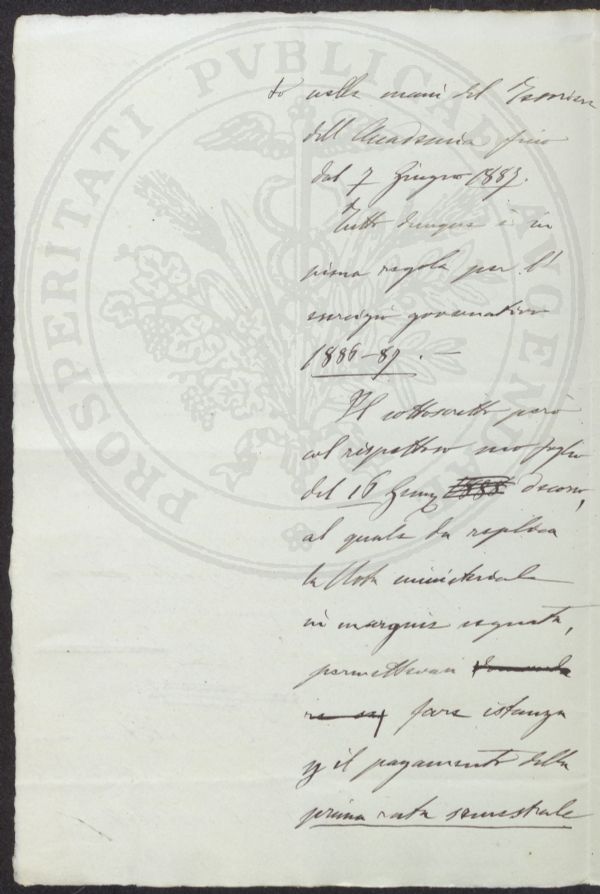 PROSPERITATI PVBLICAE AVGENDAE
to nelle mani del Tesoriere
dell'Accademia fino
dal 7 Giugno 1887.
Tutto dunque è in
piena regola per l'
esercizio governativo
1886-87. —
Il sottoscritto però
col rispettoso suo foglio
del 16 1888 decorso,
al quale da replica
la Nota ministeriale
in margine segnata,
permettevasi domanda
fare istanza
il pagamento della
prima rata semestrale